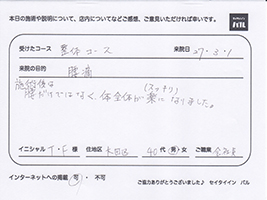 本日の施術や説明について、店内についてなどご感想、ご意見いただければ幸いです。
バル
受けたコース 整体コース 来院日 27・3・1
来院の目的 腰痛
施術後は (スッキリ)
腰だけではなく、体全体が楽になりました。
イニシャル T・F 様 住地区 大田区 40代 男・女 ご職業 会社員
インターネットへの掲載 可・不可
ご協力ありがとうございました♪ セイタイイン バル